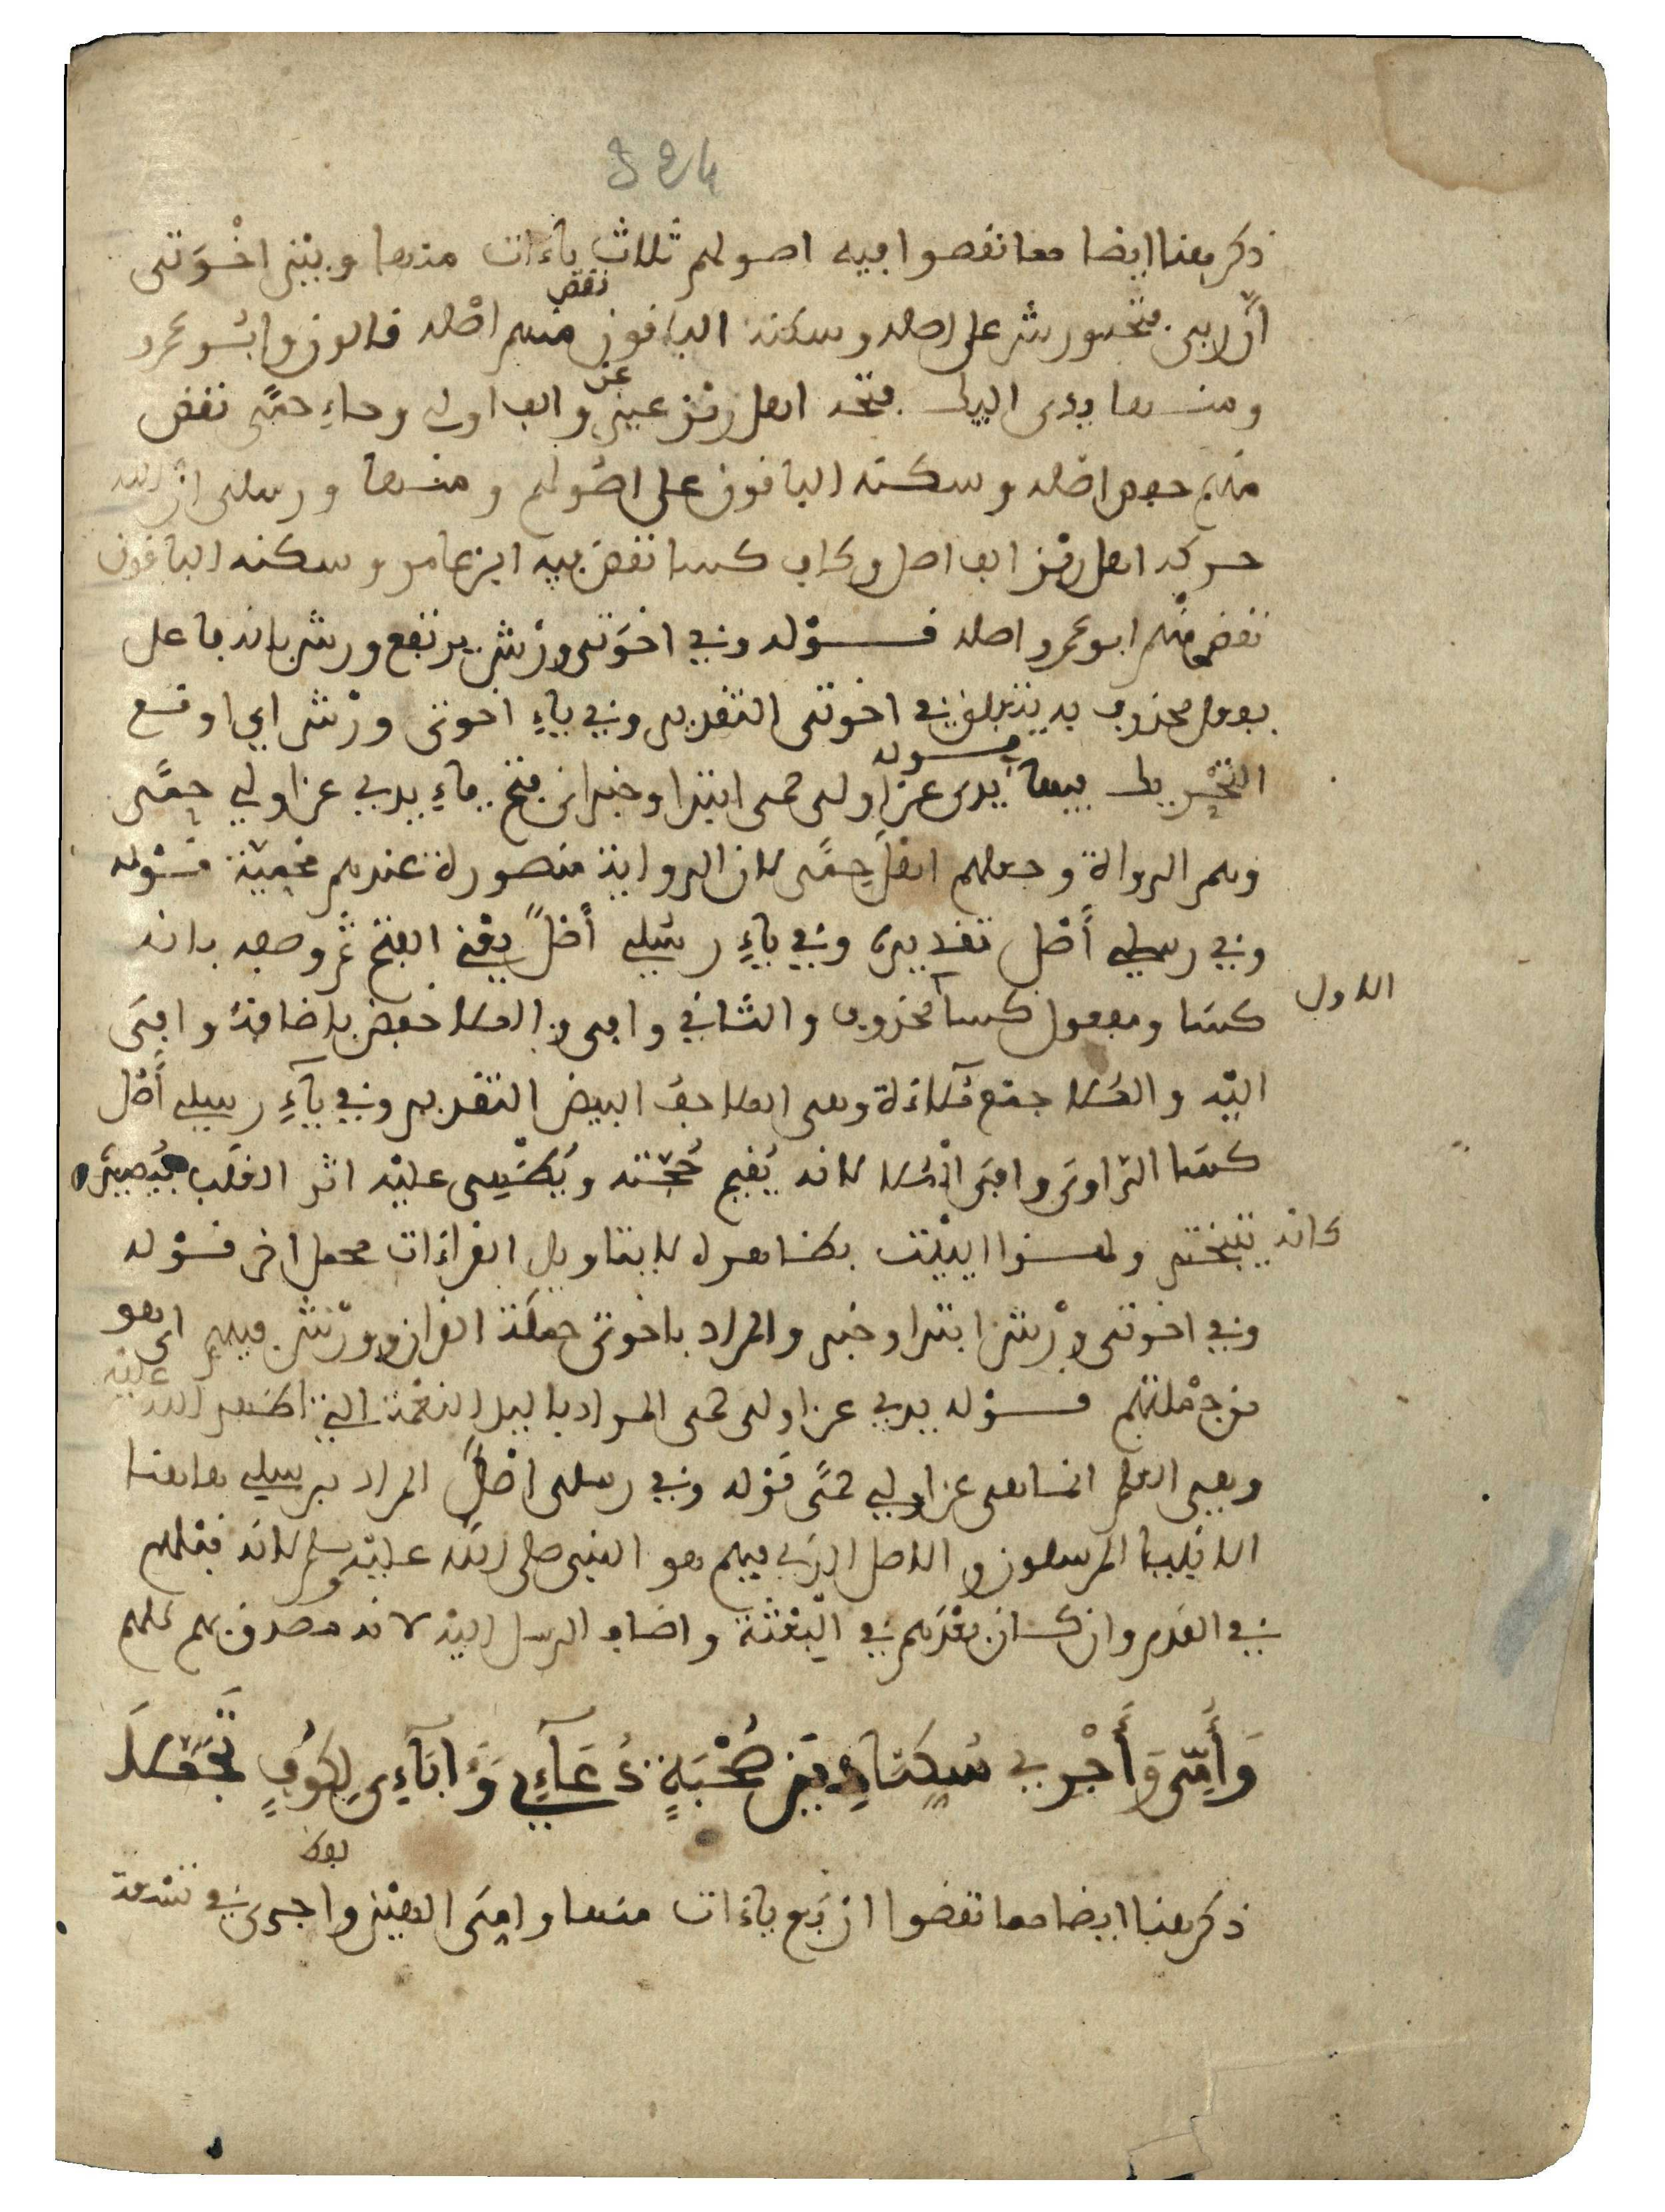 324
ذكر هنا ايضا مما نقضوا فيه اصولهم ثلاث ياءات منها وبين اخوتي
ان ربي فتحه ورش على اصله وسكنه الباقون نقض منهم اصله قالون وابو عمرو
ومنها يدي اليك فتحه اهل رمز عين عن والف اولي وحاء حمى نقض
منهم حفص اصله وسكنه الباقون على اصولهم ومنها ورسلي ان الله
حركه اهل رمز الف اصل وكاف كسا نقض فيه ابن عامر وسكنه الباقون
نقض منهم ابو عمرو اصله قوله وفي اخوتي ورش يرتفع ورش بانه فاعل
بفعل محذوف به يتعلق في اخوتي التقدير وفي ياء اخوتي ورش اي اوقع
التحريك فيها قوله يدي عن اولي حمى ابتدا وخبر اي فتح ياء يدي عن اولي حمى
وهم الرواة وجعلهم اهل حمى لان الرواية منصورة عندهم محمية قوله
وفي رسلي أصل تقديره وفي ياء رسلي أصل يعني الفتح ثم وصفه بانه
كسا ومفعول كسا الاول محذوف والثاني وافي و الملا خفض باضافة وافي
اليه والملا جمع ملاءة وهي الملاحف البيض التقدير وفي ياء رسلي أصل
كسا الراوي وافي الملا لانه يقيم حجته ويكتسي عليه اثر الغلب فيصير
كانه يتبختر ولهذا البيت بظاهره لا بتاويل القراءات محمل اخر قوله
وفي اخوتي ورش ابتدا وخبر والمراد باخوتي حملة القران وورش فيهم اي هو
من جملتهم قوله يدي عن اولي حمى المراد باليد النعمة التي اظهر الله عليه
وهي العلم انما هي عن اولي حمى قوله وفي رسلي اصل المراد برسلي هاهنا
الانبيا المرسلون والاصل الذي فيهم هو النبي صلى الله عليه وسلم لانه قبلهم
في القدم وان كان بعدهم في البعثة واضاف الرسل اليه لانه مصدق بهم كلهم
وَأُمِّي وَأَجْرِي سُكِّنَا دِينُ صُحْبَةٍ دُعَآءِي وَءَابَآءِي لِكُوفٍ تَجَمَّلَا
ذكر هنا ايضا مما نقضوا اربع ياءات منها وامي الهين واجري في تسعة